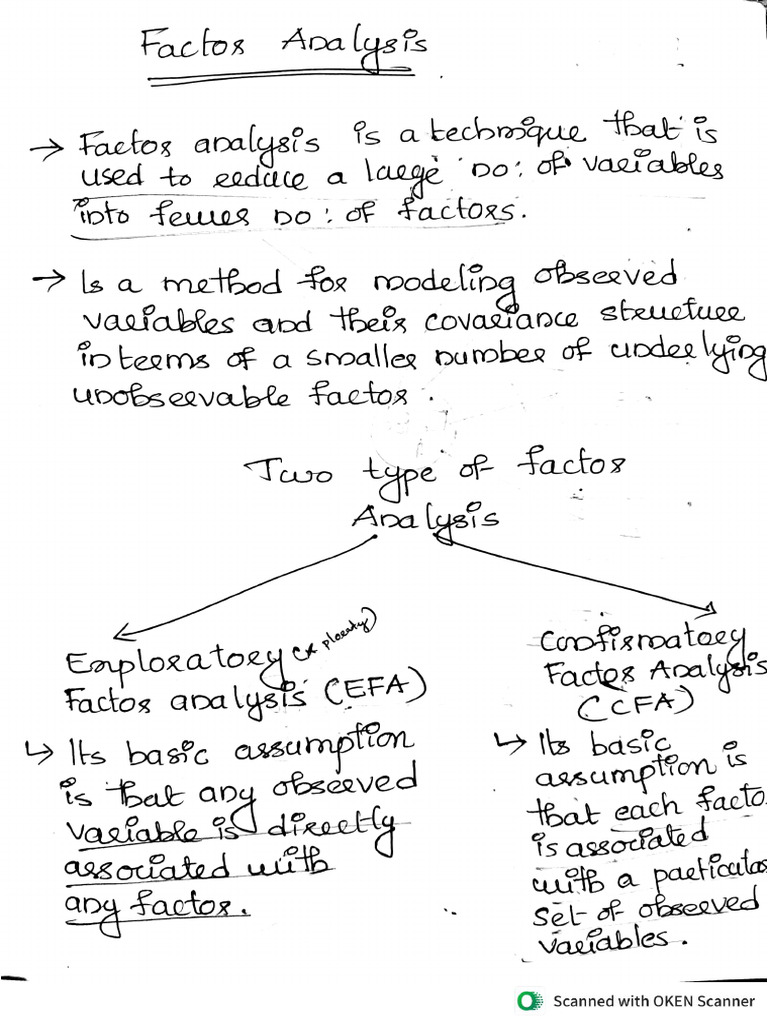 Factor Analysis
→ Factor analysis is a technique that is
used to reduce a large no: of variables
into fewer no: of factors.
→ Is a method for modeling observed
variables and their covariance structure
in terms of a smaller number of underlying
unobservable factor.
Two type of factor
Analysis
Emploratory (exploratory)
Factor analysis (EFA)
↳ Its basic assumption
is that any observed
variable is directly
associated with
any factor.
Confirmatory
Factor Analysis
(CFA)
↳ Its basic
assumption is
that each facto
is associated
with a particular
set of observed
variables.
Scanned with OKEN Scanner